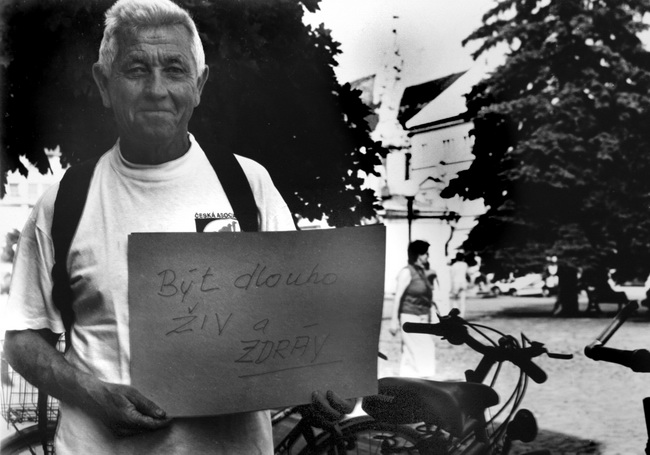 ČESKÁ ASOC
Být dlouho
ŽIV a
ZDRÁV